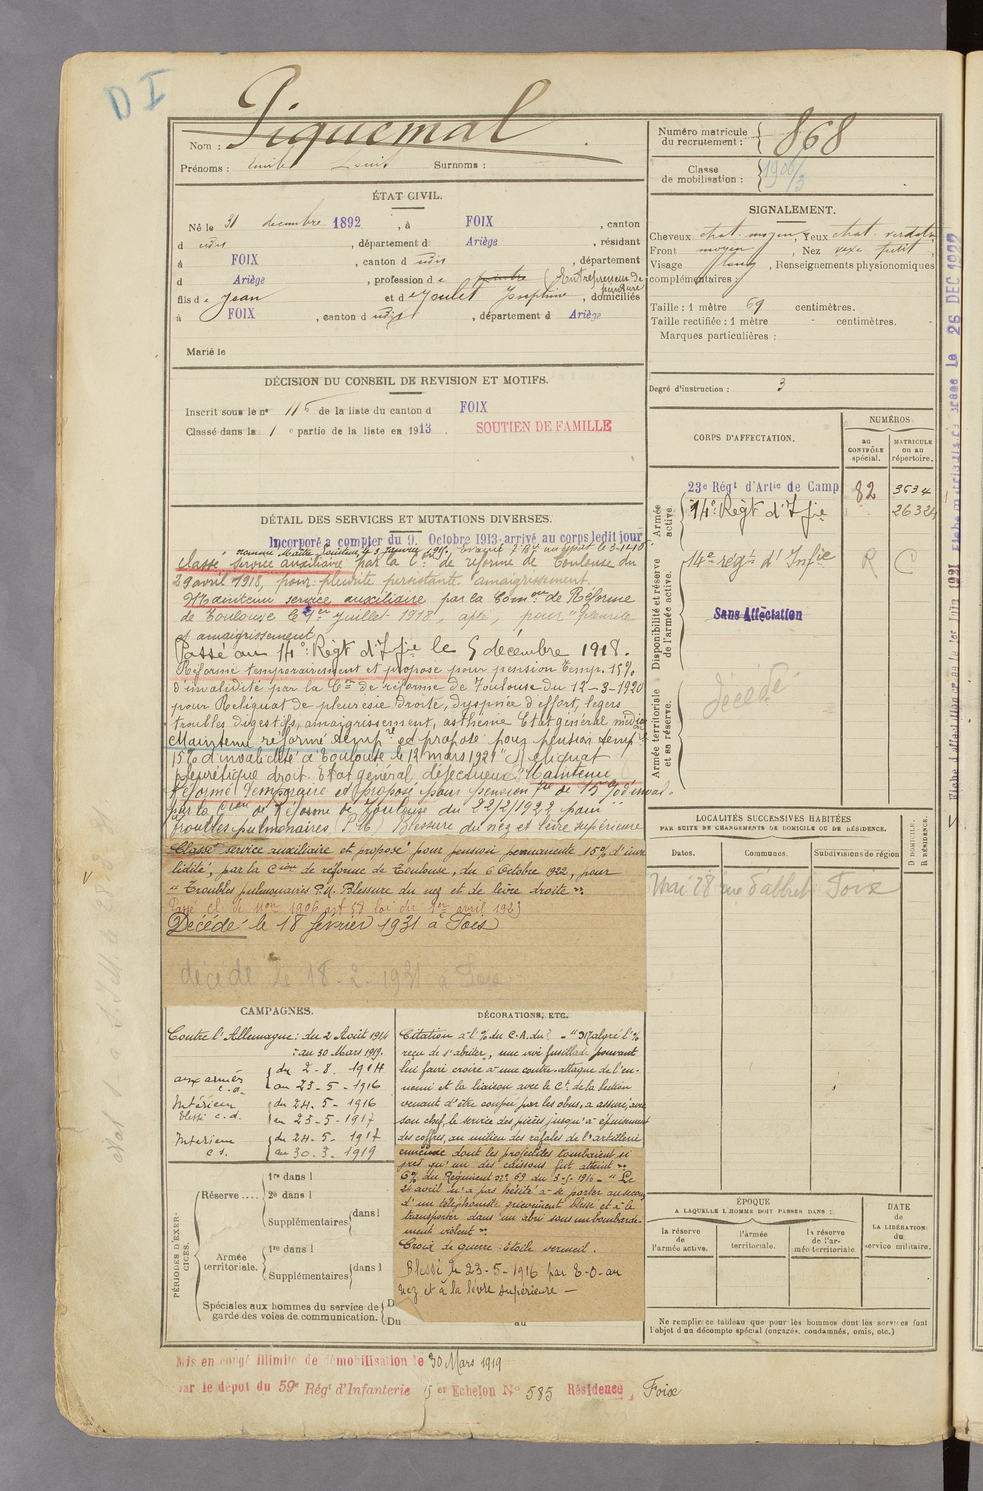 D I
Nom : Piquemal
Prénoms : Emile Louis Surnoms :
ÉTAT CIVIL.
Né le 31 décembre 1892, à FOIX, canton
d udis, département d Ariège, résidant
à FOIX, canton d udis, département
d Ariège, profession de peintre (Entrepreneur de peinture
fils de Jean et de Joulet Joséphine, domiciliés
à FOIX, canton d udis, département d Ariège
Marié le
DÉCISION DU CONSEIL DE REVISION ET MOTIFS.
Inscrit sous le n° 115 de la liste du canton d FOIX
Classé dans la 1e partie de la liste en 1913 SOUTIEN DE FAMILLE
DÉTAIL DES SERVICES ET MUTATIONS DIVERSES.
Incorporé à compter du 9 Octobre 1913 arrivé au corps ledit jour
classé service auxiliaire par la Con de réforme de Toulouse du
29 avril 1918, pour pleurite persistante amaigrissement.
Maintenu service auxiliaire par la Comon de Réforme
de Toulouse le 1er Juillet 1918, apte, pour "pleurite
et amaigrissement"
Passé au 14e Régt d'Ifie le 5 décembre 1918.
Réformé temporairement et proposé pour pension temp. 15%
d'invalidité par la Con de réforme de Toulouse du 12-3-1920
pour Reliquat de pleurésie droite, dyspnée d'effort, légers
troubles digestifs, amaigrissement, asthénie Etat général médiocre
Maintenu réformé temp re et proposé pour pension temp re
15% d'invalidité à Toulouse le 12 mars 1921 "Reliquat
pleurétique droit. Etat général défectueux". Maintenu
Réformé Temporaire et proposé pour pension tre de 15% d'inval-
par la Cion de Réforme de Toulouse du 22/2/1922 pour
troubles pulmonaires (P.U) Blessure du nez et lèvre supérieure
Classé service auxiliaire et proposé pour pension permanente 15% d'inva
lidité, par la Cion de réforme de Toulouse, du 6 Octobre 1922, pour
"Troubles pulmonaires P.U. Blessure du nez et de lèvre droite"
Passé cl. de mon 1906 art 58 loi du 1er avril 1923
Décédé le 18 février 1931 à Foix
décédé le 18-2-1931 à Foix
CAMPAGNES.
Contre l'Allemagne : du 2 Août 1914
au 30 Mars 1919.
aux armées c.d. du 2-8-1914
au 23-5-1916
Intérieur blessé c.d. du 24-5-1916
au 23-5-1917
Intérieur c.s. du 24-5-1917
au 30-3-1919
PÉRIODES D'EXERCICES.
Réserve .... 1re dans l
2e dans l
Supplémentaires dans l
Armée territoriale. 1re dans l
Supplémentaires dans l
Spéciales aux hommes du service de garde des voies de communication. D
Du au
DÉCORATIONS, ETC.
Citation à l'% du C.A. du? - "Malgré l'%
reçu de s'abriter, une vive fusillade pouvant
lui faire croire à une contre-attaque de l'en-
nemi et la liaison avec le Ct. de la section
venant d'être coupée par les obus, a assuré, avec
son chef, le service des pièces jusqu'à épuisement
des coffres, au milieu des rafales de l'artillerie
ennemie dont les projectiles tombaient si
près qu'un des caissons fut atteint"
% du Régiment n° 69 du 3-5-1916 - "Le
24 avril n'a pas hésité à se porter au secours
d'un téléphoniste grièvement blessé et à le
transporter dans un abri sous un bombarde-
ment violent".
Croix de guerre : Etoile vermeil.
Blessé le 23-5-1916 par E-O. au
nez et à la lèvre supérieure —
Mis en congé illimité de démobilisation le 30 Mars 1919
par le dépôt du 59e Régt d'Infanterie 5er Echelon No 585 Résidence, Foix
Numéro matricule du recrutement : 868
Classe de mobilisation : 1906/3
SIGNALEMENT.
Cheveux chat. moyens, Yeux chat. verdâtre
Front moyen, Nez vexe petit,
Visage long, Renseignements physionomiques
complémentaires :
Taille : 1 mètre 69 centimètres.
Taille rectifiée : 1 mètre - centimètres.
Marques particulières :
Degré d'instruction : 3
CORPS D'AFFECTATION.
NUMÉROS
au CONTRÔLE spécial.
MATRICULE ou au répertoire.
Armée active.
23e Régt d'Artie de Camp 82 3634
14e Régt d'Ifie 26324
Disponibilité et réserve de l'armée active.
14e régt d'Infie R C
Sans Affectation
Armée territoriale et sa réserve.
décédé
LOCALITÉS SUCCESSIVES HABITÉES
PAR SUITE DE CHANGEMENTS DE DOMICILE OU DE RÉSIDENCE.
Dates. Communes. Subdivisions de région
D. DOMICILE. R. RÉSIDENCE.
Mai 28 rue d'albret Foix
ÉPOQUE
A LAQUELLE L'HOMME DOIT PASSER DANS :
la réserve de l'armée active.
l'armée territoriale.
la réserve de l'armée territoriale
DATE de LA LIBÉRATION du service militaire.
Ne remplir ce tableau que pour les hommes dont les services font
l'objet d'un décompte spécial (engagés, condamnés, omis, etc.)